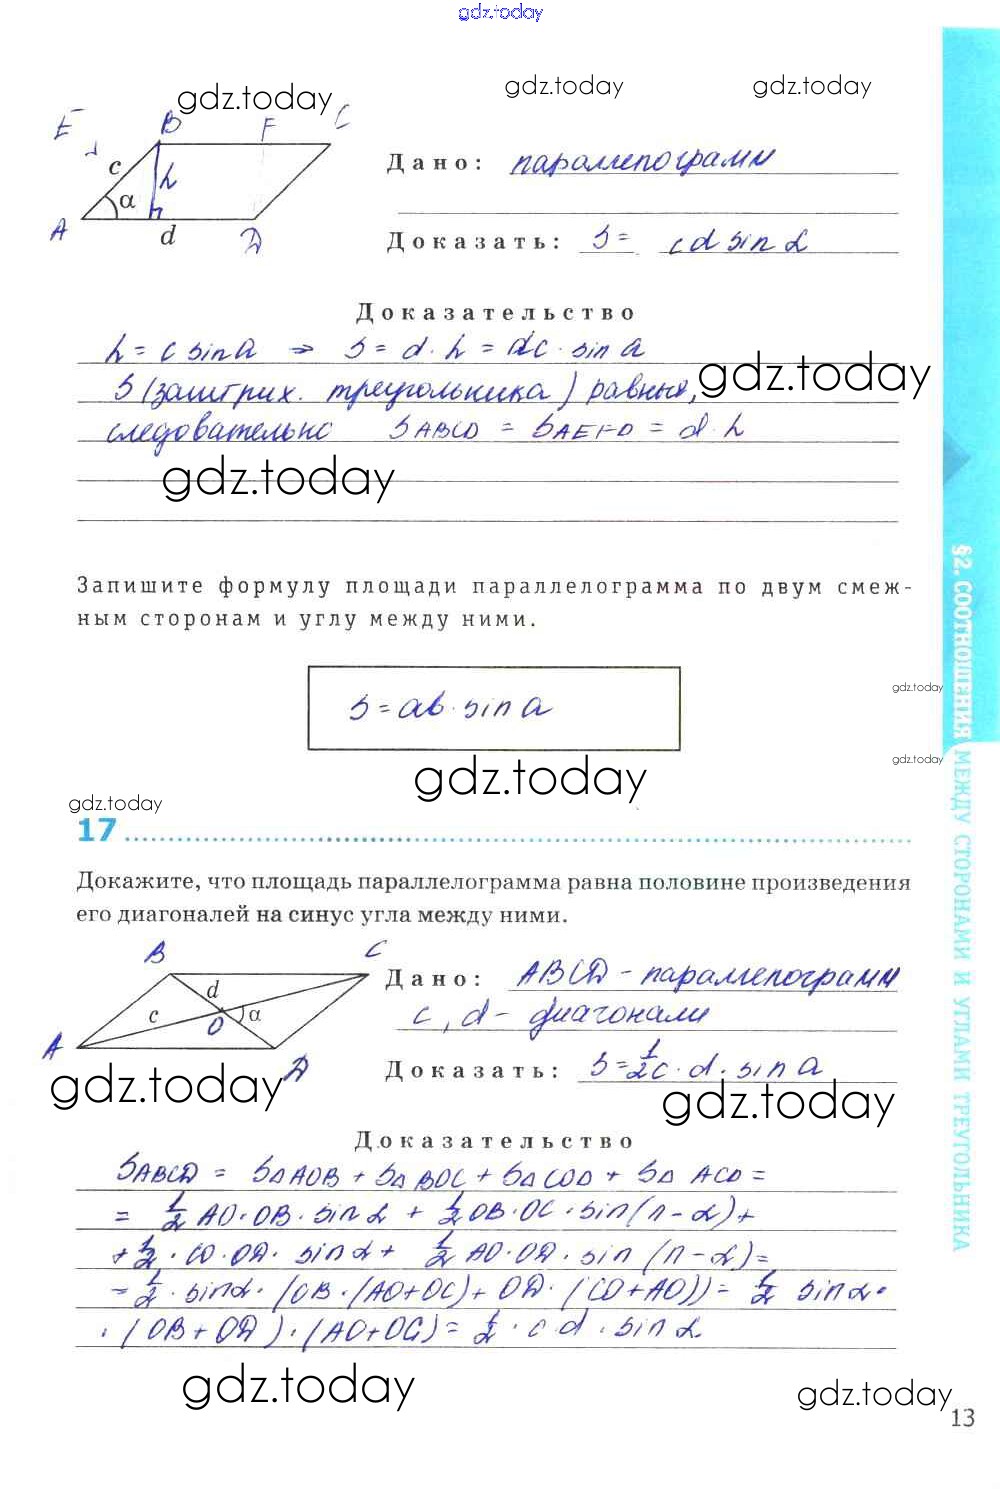 gdz.today
gdz.today
gdz.today
gdz.today
E B F C
c h α
A d D
Дано: параллелограмм
Доказать: S = cd sin α
Доказательство
h = c sin α ⇒ S = d · h = dc · sin α
S (заштрих. треугольника) равные,
gdz.today
следовательно SABCD = SAEFD = d · h
gdz.today
Запишите формулу площади параллелограмма по двум смеж-
ным сторонам и углу между ними.
S = ab · sin α
gdz.today
gdz.today
gdz.today
gdz.today
17
Докажите, что площадь параллелограмма равна половине произведения
его диагоналей на синус угла между ними.
B C
d
c O α
A D
Дано: ABCD - параллелограмм
c, d - диагонали
Доказать: S = 1/2 c · d · sin α
gdz.today
gdz.today
Доказательство
SABCD = S△AOB + S△BOC + S△COD + S△ACD =
= 1/2 AO · OB · sin α + 1/2 OB · OC · sin(π - α) +
+ 1/2 · CO · OD · sin α + 1/2 AO · OD · sin (π - α) =
= 1/2 · sin α · (OB · (AO + OC) + OD · (CO + AO)) = 1/2 sin α ·
· (OB + OD) · (AO + OC) = 1/2 · c d · sin α.
gdz.today
gdz.today
§2. СООТНОШЕНИЯ МЕЖДУ СТОРОНАМИ И УГЛАМИ ТРЕУГОЛЬНИКА
13